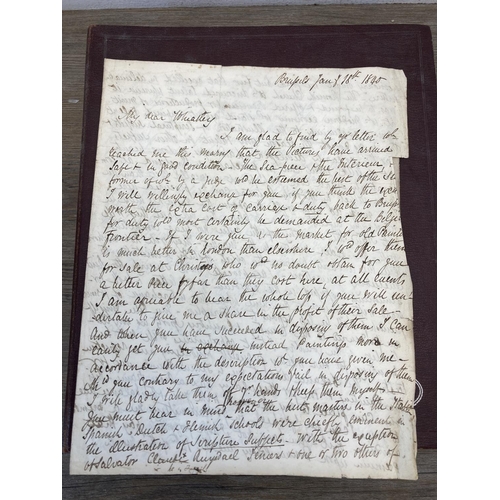 Brussels Jany 18th 1840
My dear Wheatley
I am glad to find by yr letter wh
reached me this morng that the Pictures have arrived
safe & in good condition - The Sea piece & the Interieur,
former of wh by a judge wd be esteemed the best of the
I will willingly exchange for you if you think the exch
worth the Extra Cost of Carriage & duty back to Brus
for duty wd most certainly be demanded at the Belgi
frontier - If I were you as the market for old Painti
is much better in London than elsewhere I wd offer them
for sale at Christys, who wd no doubt obtain for you
a better price by far than they cost here, at all events
I am agreeable to bear the whole loss if you will un
dertake to give me a share in the profit of their sale
And when you have succeeded in disposing of them I can
easily get you in exchange instead Paintings more in
accordance with the description wh you have given me -
Shd you contrary to my expectation fail in disposing of them
I will gladly take them off yr hands & keep them myself -
You must bear in mind that the best masters in the Italian
Spanish Dutch & Flemish Schools were chiefly eminent in
the illustration of Scripture Subjects - With the exception
of Salvator Claude Ruysdael Teniers & one or two others of